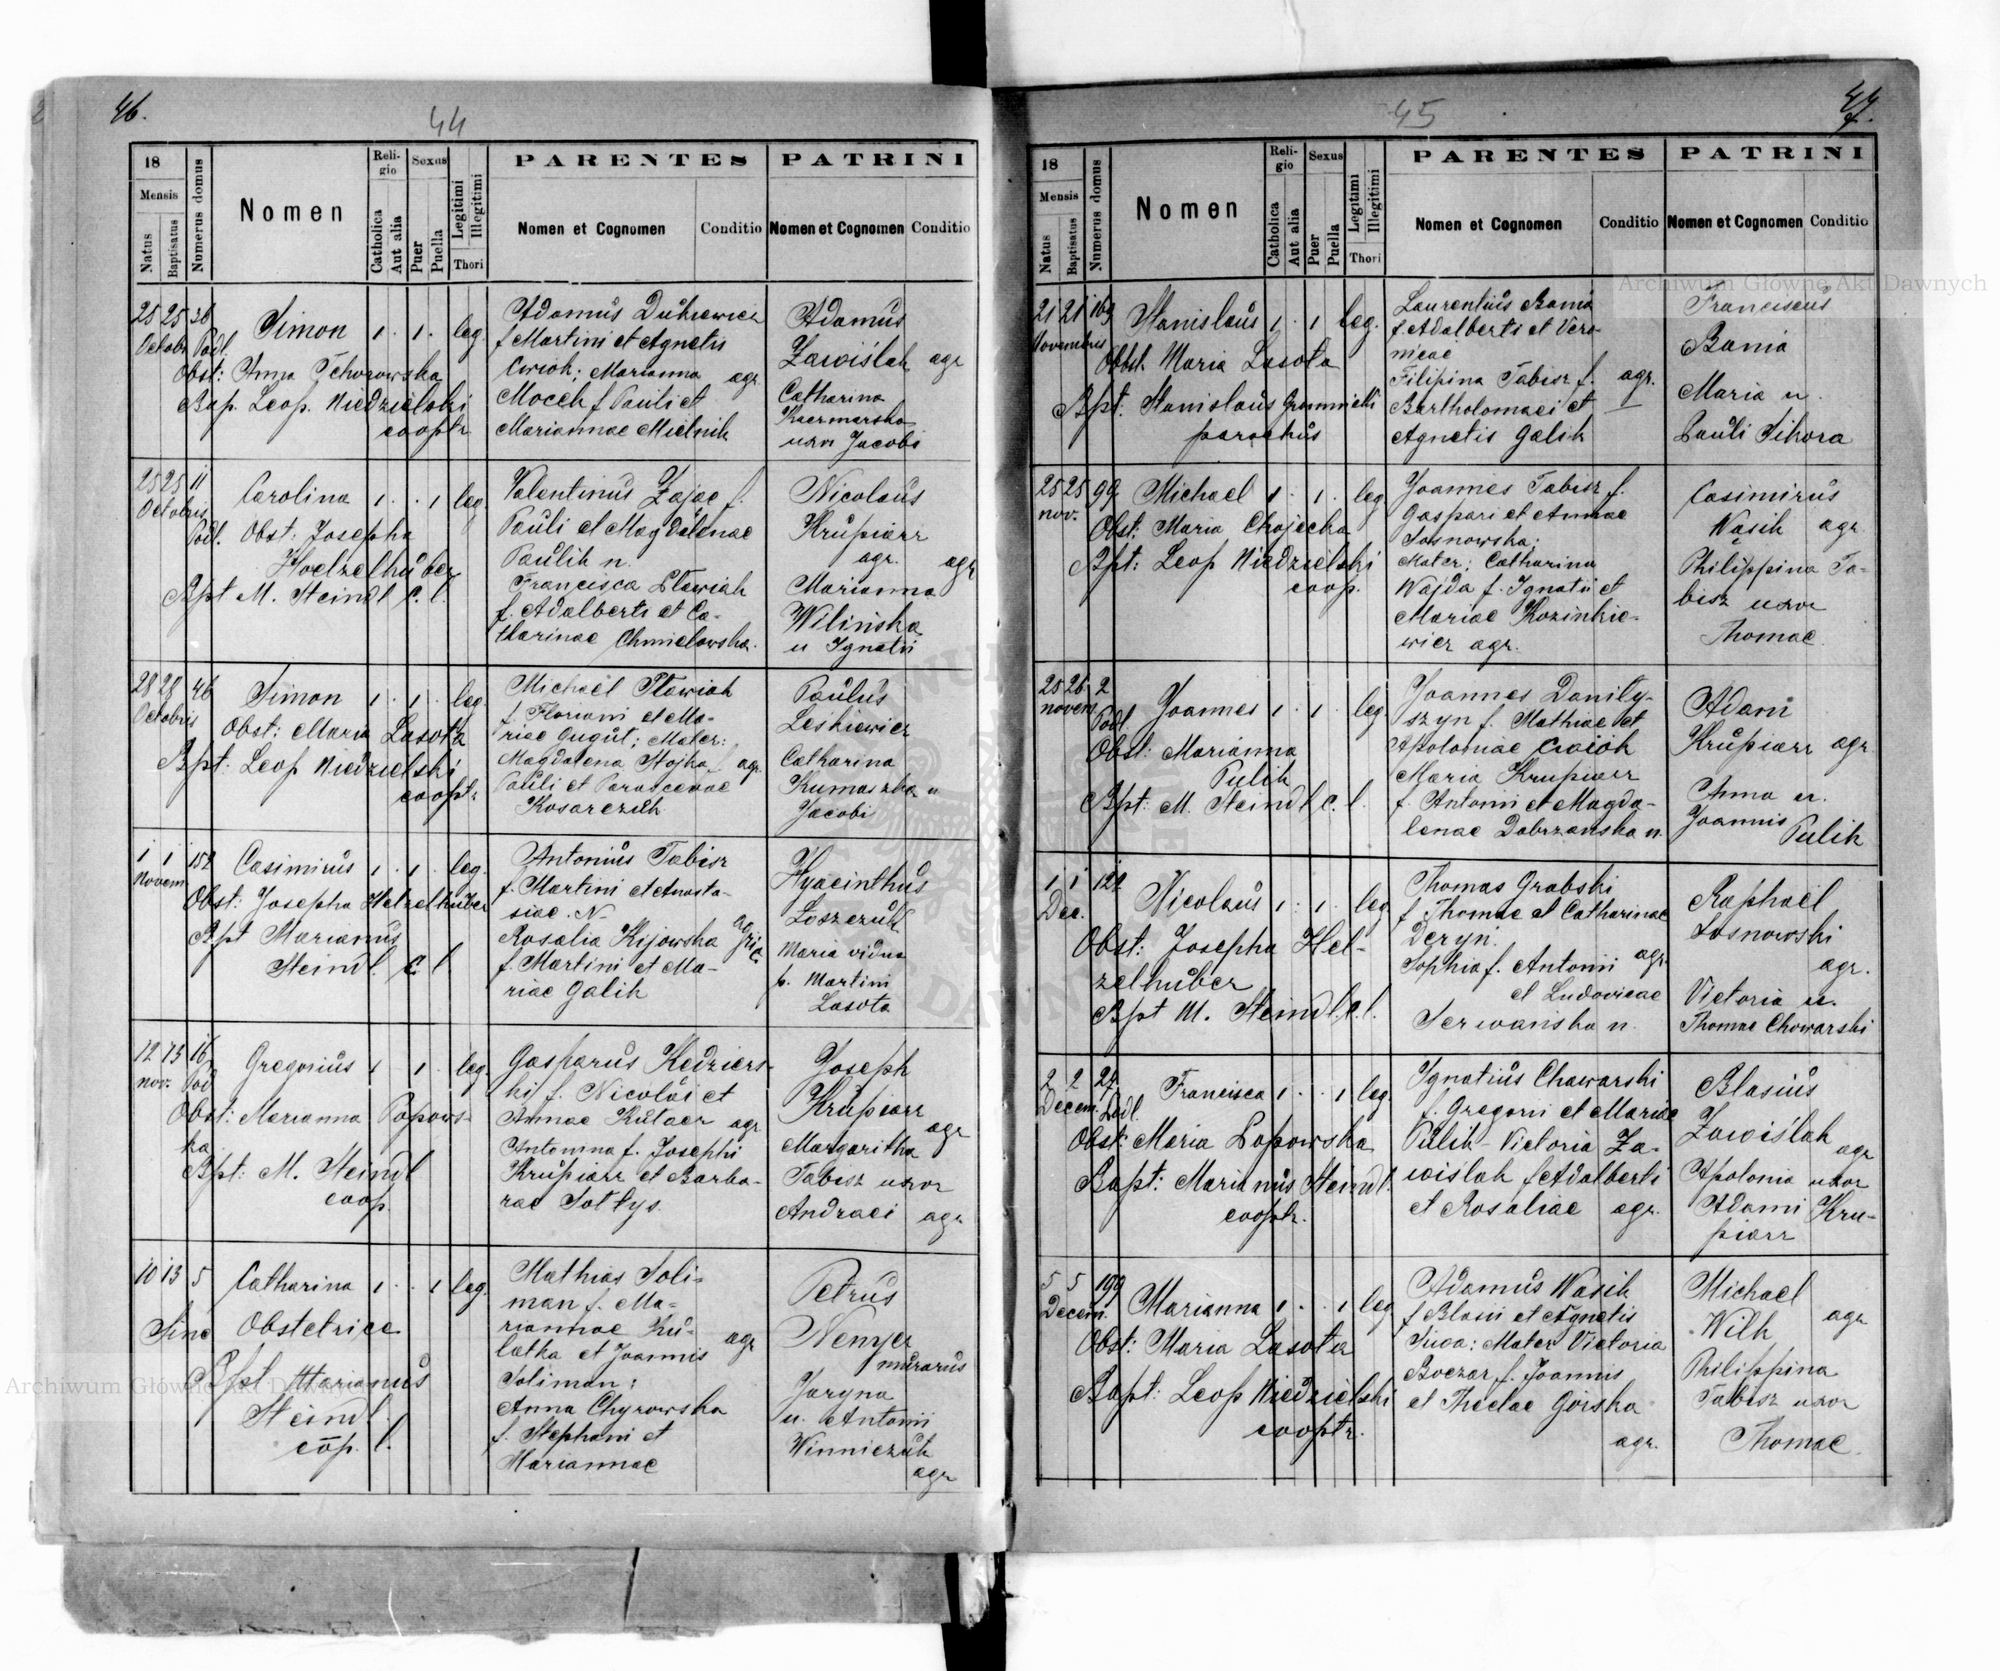 46.
44
18
Mensis
Natus
Baptisatus
Numerus domus
Nomen
Religio
Catholica
Aut alia
Sexus
Puer
Puella
Legitimi
Illegitimi
Thori
PARENTES
Nomen et Cognomen
Conditio
PATRINI
Nomen et Cognomen
Conditio
25 25 26
Octobr Podl.
Simon 1 . 1 . leg.
Obst: Anna Tchorowska
Bap. Leop. Niedzielski
cooptr
Adamus Duhiewicz
f Martini et Agnetis
Cwiok; Marianna agr
Moceh f Pauli et
Mariannae Mielnik
Adamus
Zawiślak agr
Catharina
Kaczmarska
uxor Jacobi
25 25 11
Octobris
Podl.
Carolina 1 . . 1 leg.
Obst. Josepha
Hoelzelhuber
Bpt M. Steindl c. l.
Valentinus Zając f.
Pauli et Magdalenae
Paulik n.
Francisca Stawiak
f. Adalberti et Ca-
tharinae Chmielowska.
Nicolaus
Krupiarz
agr. agr
Marianna
Wilinska
u Ignatii
28 28 46
Octobris
Simon 1 . 1 . leg.
Obst: Maria Lasota
Bpt: Leop Niedzielski
cooptr
Michaël Stawiak
f. Floriani et Ma-
riae Gugut; Mater:
Magdalena Stojka f. agr.
Pauli et Parascevae
Kosarczuk
Paulus
Leskiewicz
Catharina
Kumaszka u
Jacobi
1 1 152
Novem
Casimirus 1 . 1 . leg.
Obst: Josepha Helzelhuber
Bpt Marianus
Steindl. c. l
Antonius Tabisz
f. Martini et Anasta-
siae. N-
Rosalia Kijowska agric.
f. Martini et Ma-
riae Galik
Hyacinthus
Loszczuk
Maria vidua
p. Martini
Lasota
12 13 16
nov. Pod
Gregorius 1 1 . leg.
Obst: Marianna Popows-
ka
Bpt: M. Steindl
coop.
Gasparus Kędziers-
ki f. Nicolai et
Annae Kutacz agr
Antonina f. Josephi
Krupiarz et Barba-
rae Sołtys.
Joseph
Krupiarz
agr
Margaritha
Tabisz uxor
Andraei agr
10 13 5
Catharina 1 . . 1 leg.
Sine Obstetrice
Bpt Marianus
Steindl
coop. l.
Mathias Soli-
man f. Ma-
riannae Ku-
latka et Joannis agr
Soliman;
Anna Chyrowska
f. Stephani et
Mariannae
Petrus
Nemyer
murarus
Jaryna
u. Antonii
Winniczuk
agr
45
47.
18
Mensis
Natus
Baptisatus
Numerus domus
Nomen
Religio
Catholica
Aut alia
Sexus
Puer
Puella
Legitimi
Illegitimi
Thori
PARENTES
Nomen et Cognomen
Conditio
PATRINI
Nomen et Cognomen
Conditio
Archiwum Główne Akt Dawnych
21 21 169
Novembris
Stanislaus 1 . 1 leg.
Obst. Maria Lasota
Bpt. Stanislaus Gromnicki
parochus
Laurentius Bania
f. Adalberti et Vero-
nicae
Filipina Tabisz f. agr.
Bartholomaei et
Agnetis Galik
Franciscus
Bania
Maria u.
Pauli Sikora
25 25 99
nov.
Michael 1 . 1 . leg
Obst: Maria Chojecka
Bpt: Leop Niedzielski
coop.
Joannes Tabisz f.
Gaspari et Annae
Sosnowska;
Mater: Catharina
Wajda f. Ignatii et
Mariae Kozinkie-
wicz agr.
Casimirus
Wasik agr.
Philippina Ta-
bisz uxor
Thomae.
25 26 2
novem. Podl
Joannes 1 . 1 . leg
Obst: Marianna
Pulik
Bpt: M. Steindl c. l.
Joannes Danily-
szyn f. Mathiae et
Apoloniae Cwiok
Maria Krupiarz
f. Antonii et Magda-
lenae Dobrzanska n.
Adam
Krupiarz agr.
Anna u.
Joannis
Pulik
1 1 122
Dec.
Nicolaus 1 . 1 . leg.
Obst: Josepha Hel-
zelhuber
Bpt M. Steindl. c. l.
Thomas Grabski
f. Thomae et Catharinae
Deryn.
Sophia f. Antonii agr.
et Ludovicae
Serwanska n.
Raphaël
Sosnowski
agr.
Victoria u.
Thomae Chowarski
2 2 27
Decem. Podl.
Francisca 1 . . 1 leg.
Obst: Maria Popowska
Bapt: Marianus Steindl.
cooptr.
Ignatius Chawarski
f. Gregorii et Mariae
Pulik - Victoria Za-
wislak f Adalberti
et Rosaliae agr.
Blasius
Zawiślak
agr
Apolonia uxor
Adami Kru-
piarz
5 5 199
Decem.
Marianna 1 . . 1 leg
Obst: Maria Lasota
Bapt: Leop Niedzielski
cooptr.
Adamus Wasik
f Blasii et Agnetis
Siwa: Mater Victoria
Boczar f. Joannis
et Theclae Górska
agr.
Michael
Wilk agr
Philippina
Tabisz uxor
Thomae.
Archiwum Główne Akt Dawnych